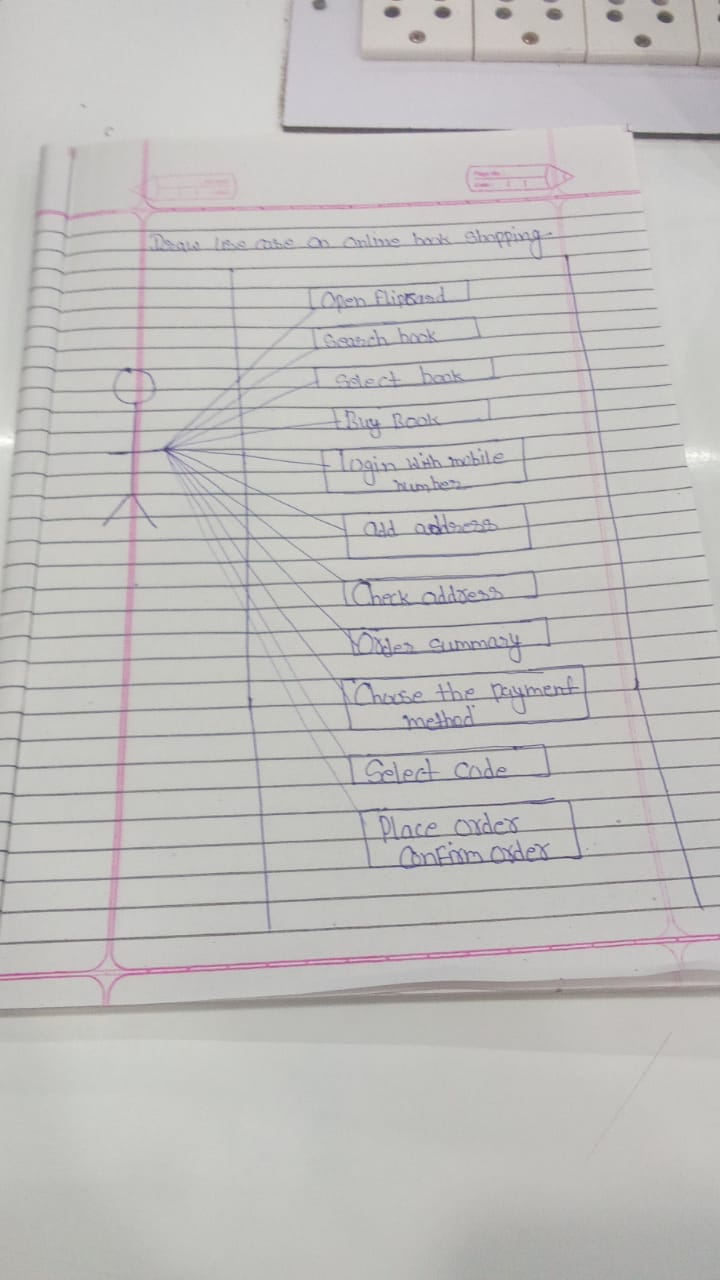 Draw Use case on online book shopping
Open Flipcard
Search book
Select book
Buy Book
login with mobile
number
add address
Check address
Order summary
Choose the payment
method
Select code
Place order
Confirm order